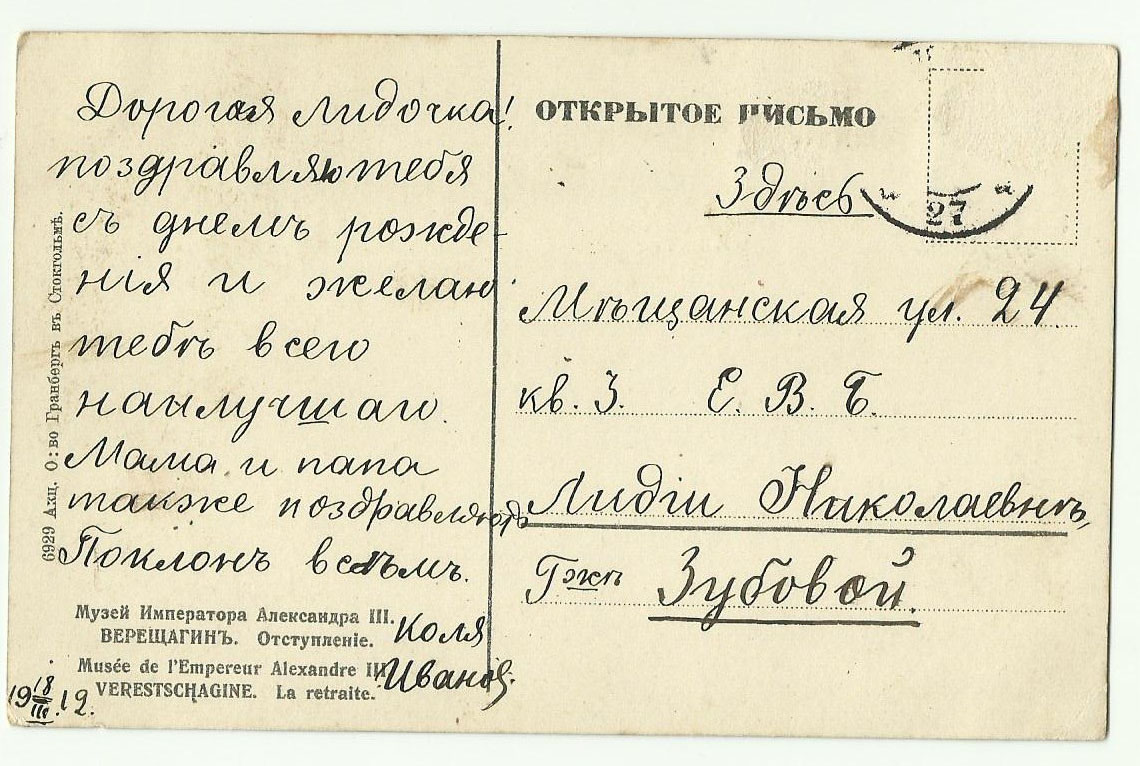 Дорогая Лидочка!
поздравляю тебя
съ днемъ рожде-
нія и желаю
тебѣ всего
наилучшаго.
Мама и папа
также поздравляютъ
Поклонъ всѣмъ.
Коля
Иванов.
19 18/III 12.
Музей Императора Александра III.
ВЕРЕЩАГИНЪ. Отступленіе.
Musée de l'Empereur Alexandre III
VERESTSCHAGINE. La retraite.
6929 Акц. О:во Гранбергъ въ Стокгольмѣ.
ОТКРЫТОЕ ПИСЬМО
Здѣсь
27
Мѣщанская ул. 24.
кв. 3. Е. В. Б.
Лидіи Николаевнѣ,
Гжѣ Зубовой.